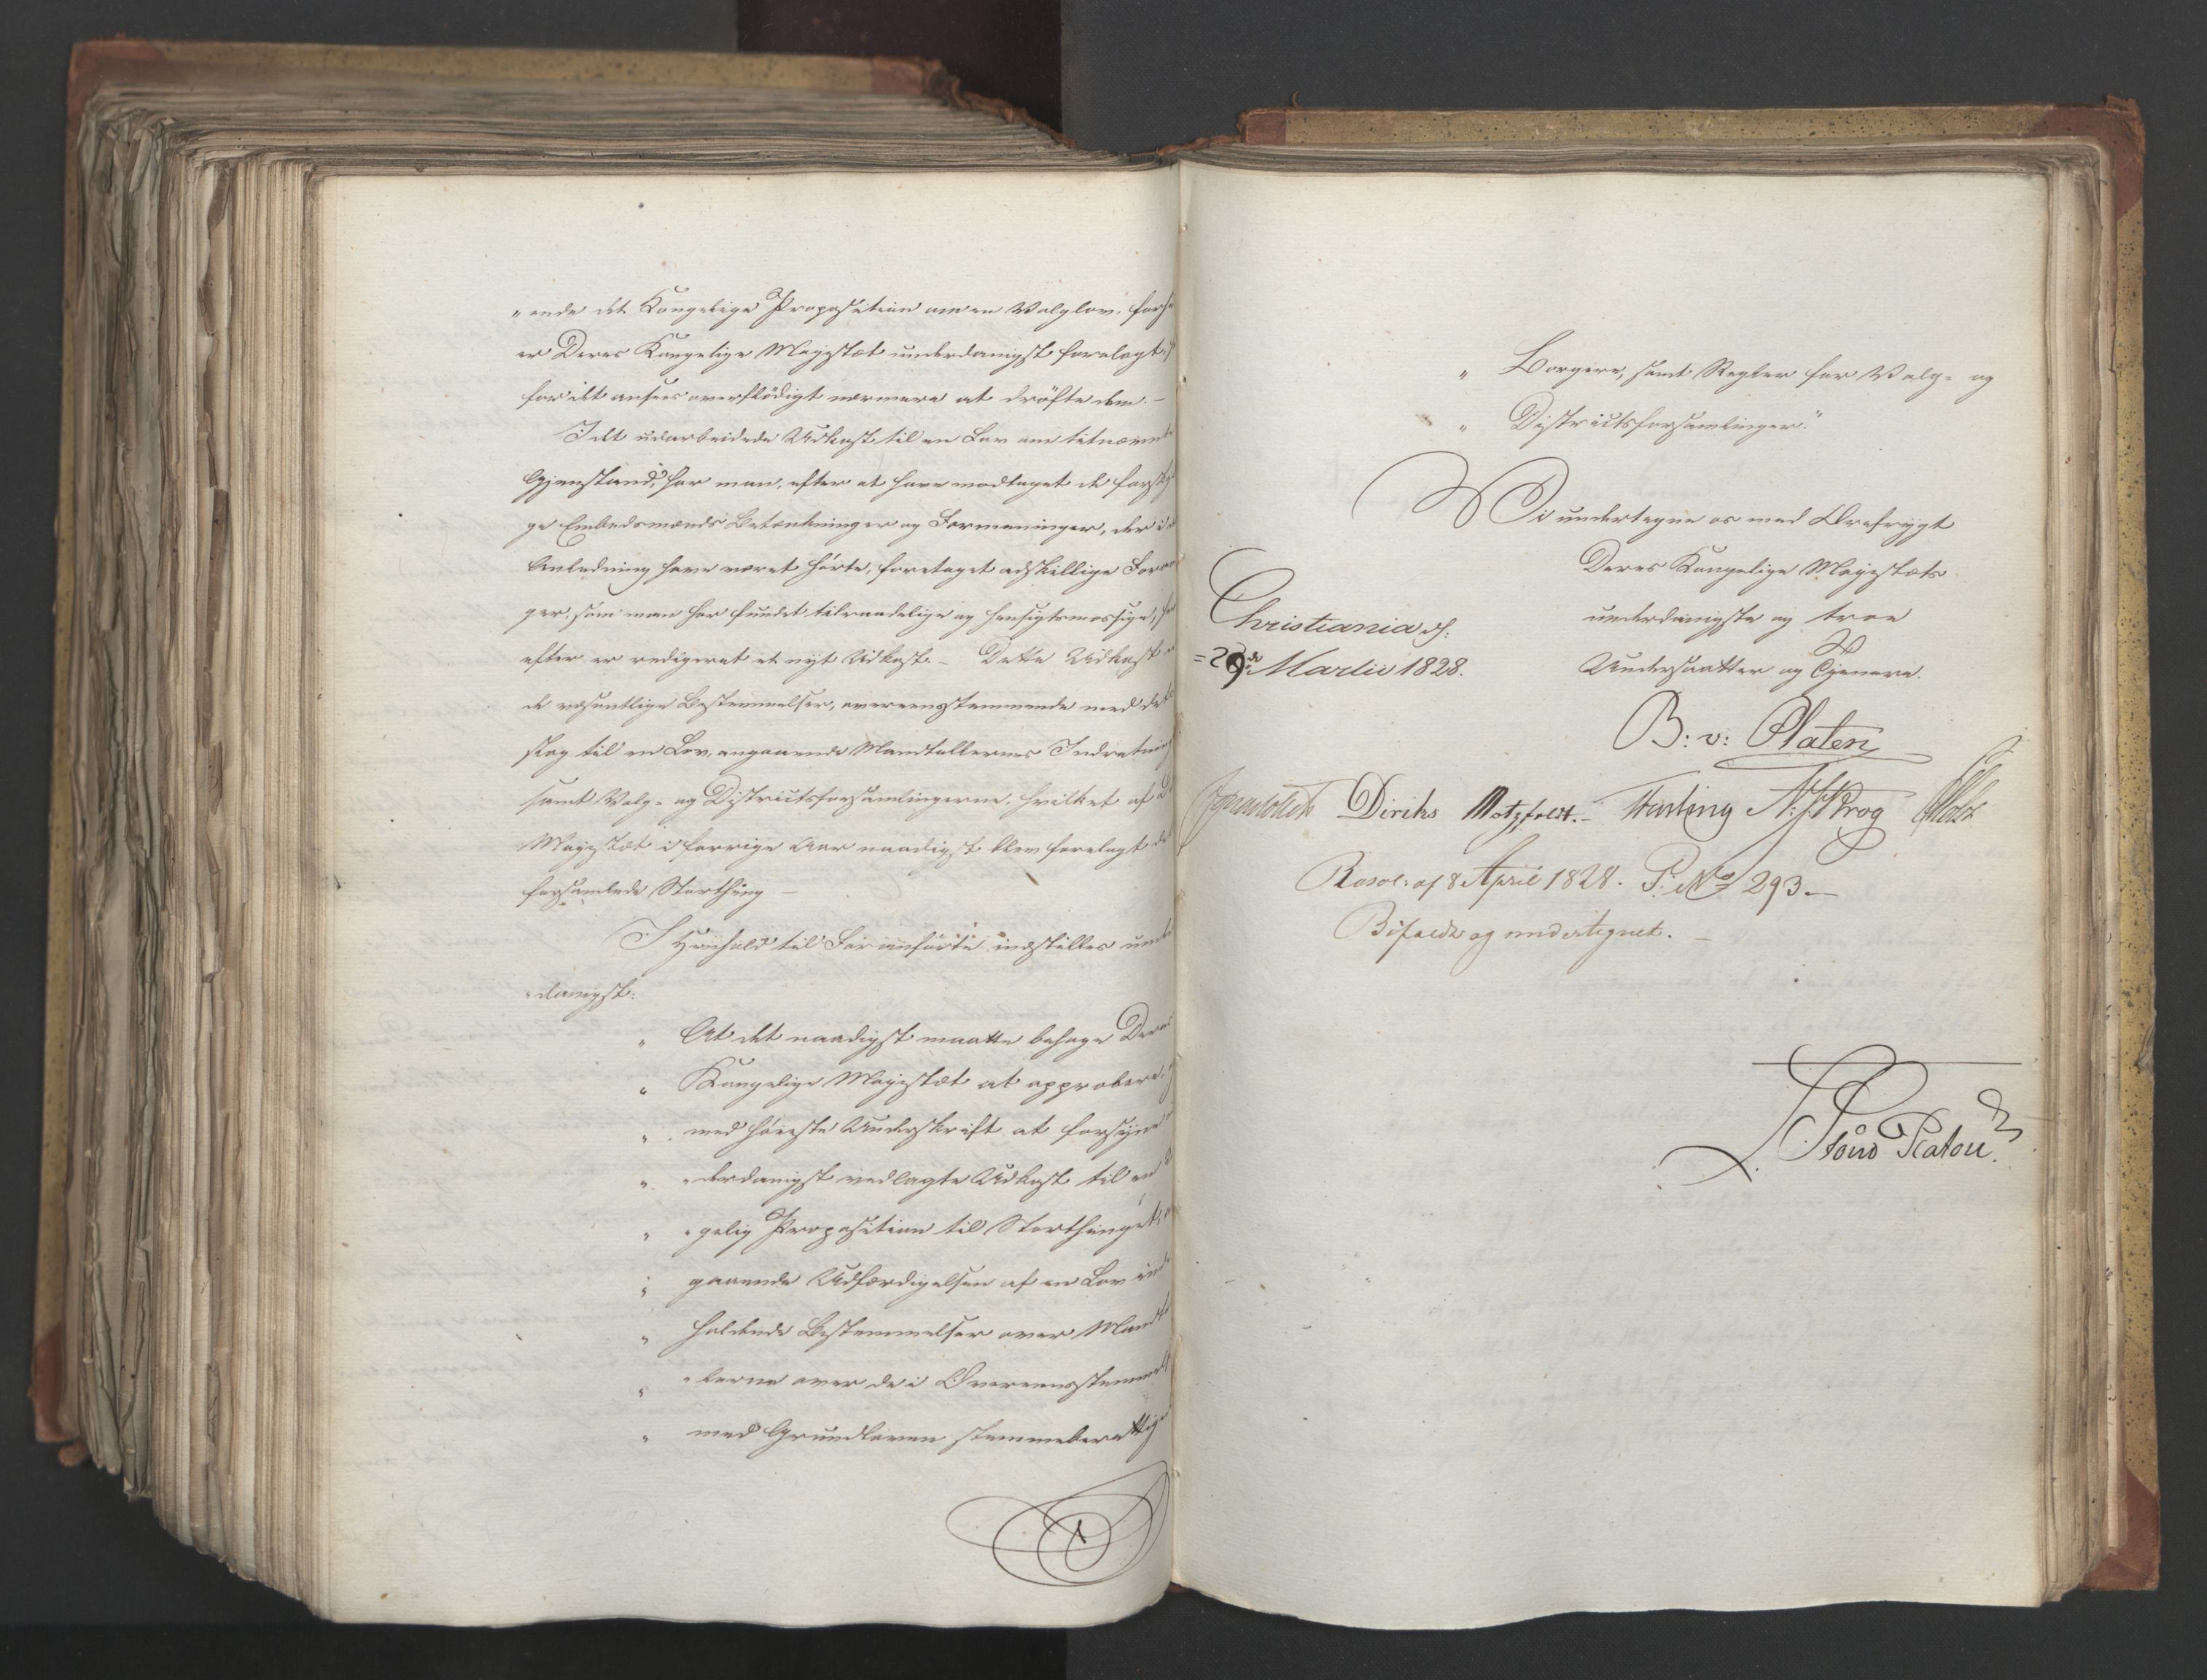 "ende det Kongelige Proposition om en Valglov, for
er Deres Kongelige Majestæt underdanigst forelagt,
for ikke ansees overflødigt nærmere at drøfte dem. –
I det udarbeidede Udkast til en Lov om titnævnte
Gjenstand, har man, efter at have modtaget de forskjelli
ge Embedsmænds Betænkninger og Formeninger, der i
Anledning have været hørte, foretaget adskillige Foran
ger, som man har fundet tilraadelige og hensigtsmæssige,
efter er redigeret et nyt Udkast. – Dette Udkast
de væsentlige Bestemmelser, overeensstemmende med det
slag til en Lov, angaaende Mandtallernes Indretning
samt Valg- og Districtsforsamlingerne, hvilket af
Majestæt i forrige Aar naadigst blev forelagt det
forsamlede Storthing –
I Henhold til Foranførte indstilles under
"danigst:
" At det naadigst maatte behage Deres
" Kongelige Majestæt at approbere,
" med høieste Underskrift at forsyne
" "derdanigst vedlagte Udkast til en
" "gelig Proposition til Storthinget,
" gaaende Udfærdigelsen af en Lov inde
" holdende Bestemmelser over Mandtal
" "lerne over de i Overeensstemmelse
" med Grundloven stemmeberettige
" Borgere, samt Regler for Valg- og
" Districtsforsamlinger."
Vi undertegne os med Ærefrygt
Deres Kongelige Majestæts
underdanigste og troe
Undersaatter og Tjenere.
Christiania d:
=29de Martii 1828.
B: v: Platen
Diriks Motzfeldt. – Fasting N: J: Krog
Resol: af 8 April 1828. P. No 293 –
Bifaldt og undertegnet. –
Stoud Platou